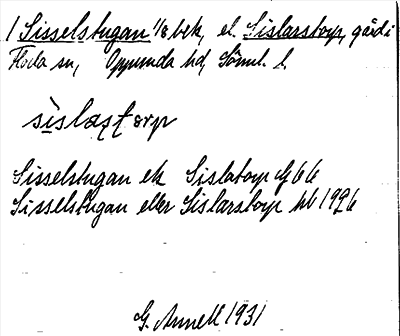 1 Sisselstugan 1/8 bek, el. Sislarstorp, gård i
Floda sn, Oppunda hd, Söml. l.
sìslastorp
Sisselstugan ek Sislatorp GEG 6
Sisselstugan eller Sislarstorp hb 1926
G. Annell 1931